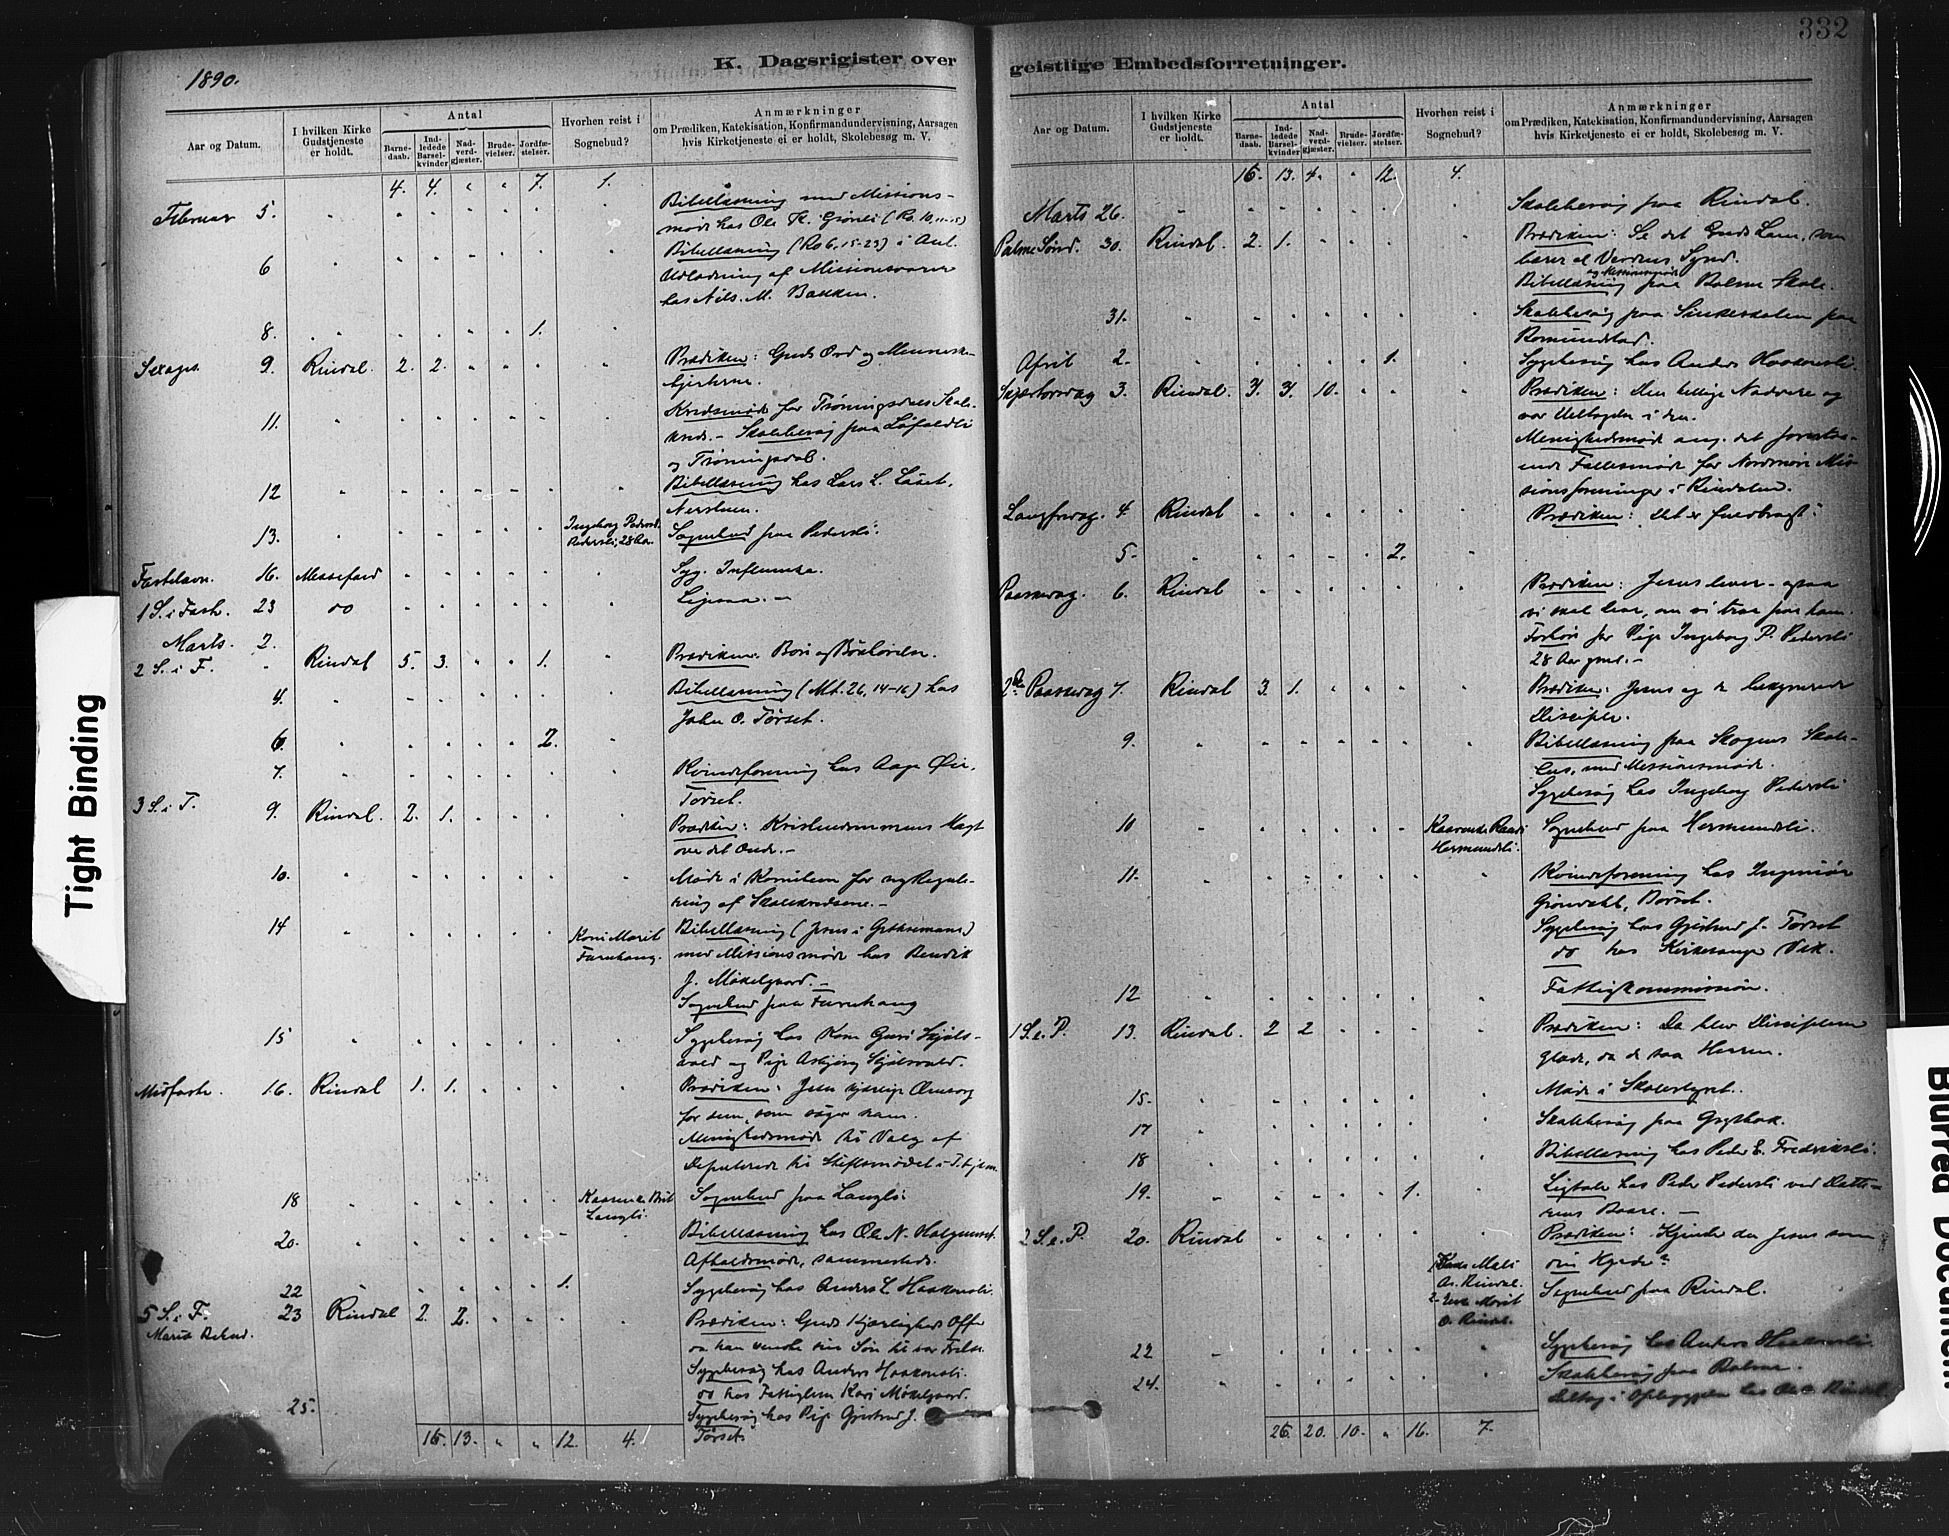 332
1890.
K. Dagsrigister over
geistlige Embedsforretninger.
Aar og Datum.
I hvilken Kirke Gudstjeneste er holdt.
Antal
Barnedaab.
Indledede Barselkvinder
Nadverdgjæster.
Brudevielser.
Jordfæstelser.
Hvorhen reist i Sognebud?
Anmærkninger
om Prædiken, Katekisation, Konfirmandundervisning, Aarsagen
hvis Kirketjeneste ei er holdt, Skolebesøg m. V.
4. 4. " " 7. 1.
Februar 5. Bibellæsning med Missions-
møde hos Ole
6 Bibellæsning (Ro 6, 15-23) i Anl.
Udlodning af Missionsvarer
hos Nils. M. Bakken.
8. 1.
Sexages. 9. Rindal. 2. 2. Prædiken: Guds Ord og Menneske-
hjerterne.
11. Kredsmøde for Trøningsdals Skole-
kreds. - Skolebesøg paa Løfaldli
og Trøningsdal.
12 Bibellæsning hos Lars L. Løset,
13. Ingeborg Pedersd. Pedersli, 28 Aar. Sognebud paa Pedersli.
Fastelavn. 16. Messefald Syg. Influenza.
1 S. i Fast. 23 do Ligesaa. -
Marts. 2.
2 S. i F. " Rindal 5. 3. 1. Prædiken: Bøn og Bønhørelse.
4. Bibellæsning (Mt. 26, 14-16) hos
John O. Tørset.
6. 2.
7. Kvindeforening hos Aage Øie,
Tørset.
3 S. i F. 9. Rindal. 2. 1. Prædiken: Kristendommens Magt
over det Onde. -
10. Møde i Komiteen for ny Regule-
ring af Skolekredsene. -
14 Koni Marit Furuhaug. Bibellæsning (Jesus i Gethsemane)
med Missionsmøde hos Bendik
J. Møkelgaard. -
Sognebud paa Furuhaug
15 Sygebesøg hos Kone Guri Skjøls-
vold og Pige Asbjørg Skjølsvold.
Midfaste. 16. Rindal 1. 1. Prædiken: Jesu kjærlige Omsorg
for dem, som søger ham.
Menighedsmøde til Valg af
Deputerede til Stiftsmødet i T.hjem.
18 Langli. Sognebud paa Langli
20. Bibellæsning hos Ole N.
Afholdsmøde, sammesteds.
22 1. Sygebesøg hos Anders L. Haakensli.
5 S. i F. 23 Rindal 2. 2. Prædiken: Guds Kjærligheds Offer
Maria Bebud.
da han sendte sin Søn til vor Frelse.
Sygebesøg hos Anders Haakensli.
do hos Fattiglem Kari Møkelgaard.
25. Sygebesøg hos Pige Gjertrud J.
Tørset.
16. 13. " " 12. 4.
Aar og Datum.
I hvilken Kirke Gudstjeneste er holdt.
Antal
Barnedaab.
Indledede Barselkvinder
Nadverdgjæster.
Brudevielser.
Jordfæstelser.
Hvorhen reist i Sognebud?
Anmærkninger
om Prædiken, Katekisation, Konfirmandundervisning, Aarsagen
hvis Kirketjeneste ei er holdt, Skolebesøg m. V.
16. 13. 4. " 12. 4.
Marts 26. Skolebesøg paa Rindal.
Palme Sønd. 30. Rindal. 2. 1. Prædiken: Se det Guds Lam, som
bærer al Verdens Synd.
og Missionsmøde
Bibellæsning paa Bolme Skole.
31. Skolebesøg paa
Romundstad.
April 2. 1. Sygebesøg hos Anders Haakensli.
Skjærtorsdag 3. Rindal. 3. 3. 10. Prædiken: Den hellige Nadvere og
vor Deltagelse i den.
Menighedsmøde ang. det forestaa-
ende Fællesmøde for Nordmøre Mis-
sionsforeninger i Rindalen.
Langfredag. 4. Rindal Prædiken: "Det er fuldbragt."
5. 2.
Paaskedag. 6. Rindal Prædiken: Jesus lever - ogsaa
vi skal leve, om vi tror paa ham.
Forbøn for Pige Ingeborg P. Pedersli
28 Aar gml. -
2den Paaskedag 7. Rindal 3. 1. Prædiken: Jesus og de bekymrede
Disciple.
9. Bibellæsning paa Skogens Skole-
hus, med Missionsmøde.
Sygebesøg hos Ingeborg Pedersli
10 Hermundsli. Sognebud paa Hermundsli.
11. Kvindeforening hos Ingeniør
Grøndahl, Børset.
Sygebesøg hos Gjertrud J. Tørset
do hos Kirkesanger Vik.
12 Fattigkommission.
1 S. e. P. 13. Rindal. 2 2 Prædiken: Da blev Disciplene
glade, da de saa Herren.
15. Møde i Skolestyret.
17 Skolebesøg paa Grytbak.
18 Bibellæsning hos Peder E. Fredriksli.
19. 1. Ligtale hos Peder Pedersli ved Datte-
rens Baare. -
2 S. e. P. 20. Rindal Prædiken: Kjender du Jesus som
din Hyrde?
Mali
Rindal.
2. Marit
O. Rindal.
Sognebud paa Rindal.
22 Sygebesøg hos Anders Haakensli.
24. Skolebesøg paa Bolme.
26. 20. 10. " 16. 7.
Tight Binding
Blurred Document